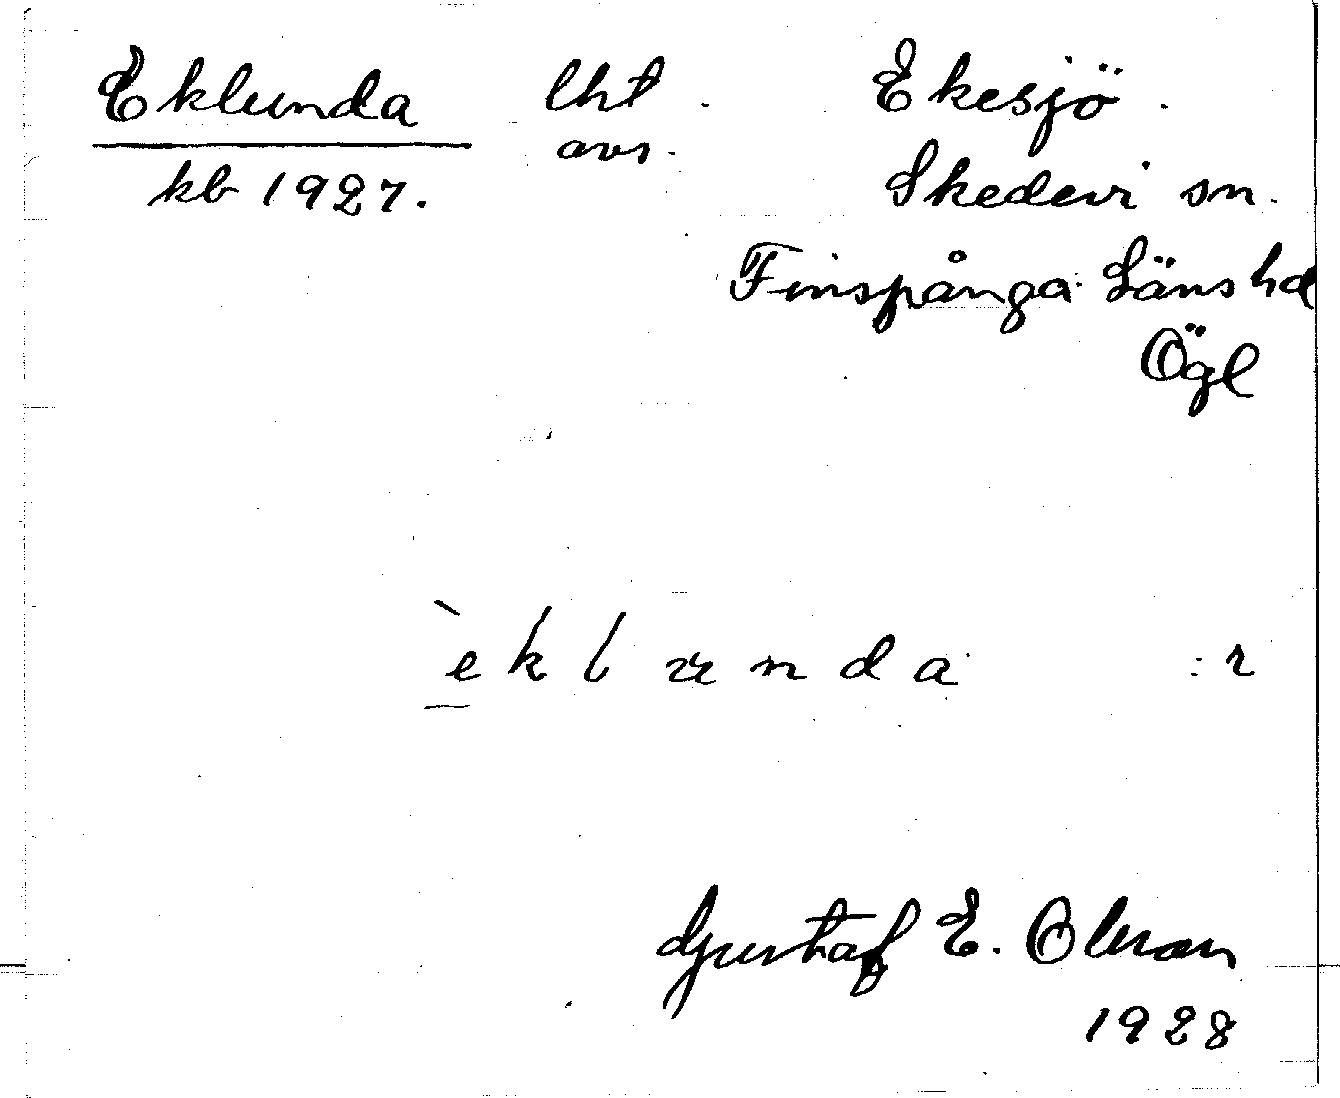 Eklunda lht. Ekesjö.
avs.
kb 1927. Skedevi sn.
Finspånga Läns hd
Ögl
èklunda :r
Gustaf E. Olsson
1928